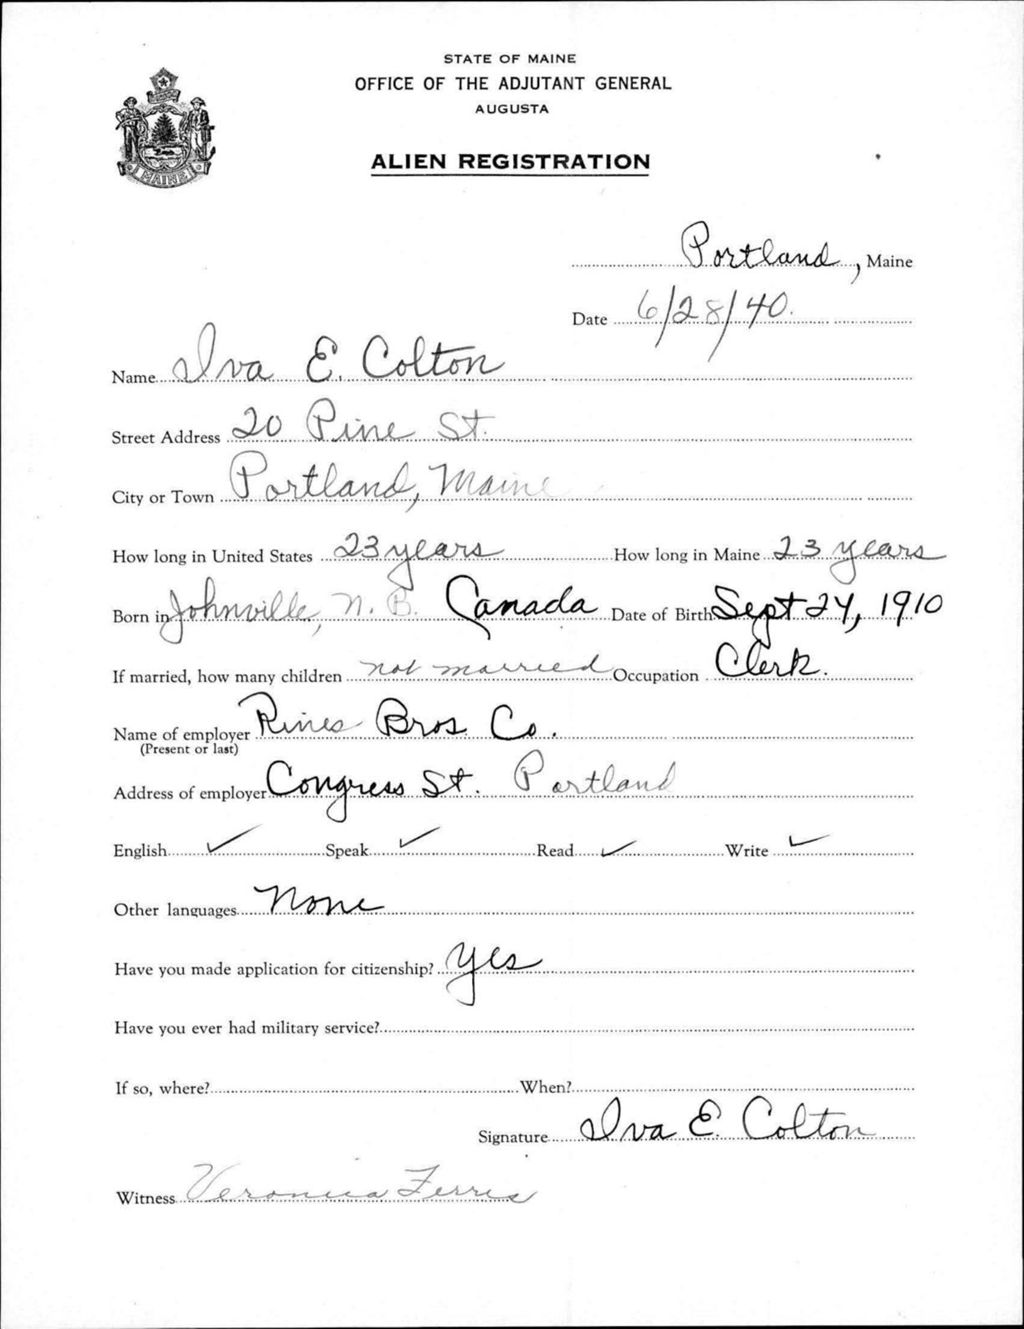 STATE OF MAINE
OFFICE OF THE ADJUTANT GENERAL
AUGUSTA
ALIEN REGISTRATION
MAINE
Portland, Maine
Date 6/28/40.
Name Iva E. Colton
Street Address 20 Pine St.
City or Town Portland, Maine
How long in United States 23 years How long in Maine 23 years
Born in Johnville, N. B. Canada Date of Birth Sept 24, 1910
If married, how many children not married Occupation Clerk.
Name of employer Rines Bros. Co.
(Present or last)
Address of employer Congress St. Portland
English ✓ Speak ✓ Read ✓ Write ✓
Other languages None
Have you made application for citizenship? Yes
Have you ever had military service?
If so, where? When?
Signature Iva E. Colton
Witness Veronica Ferris